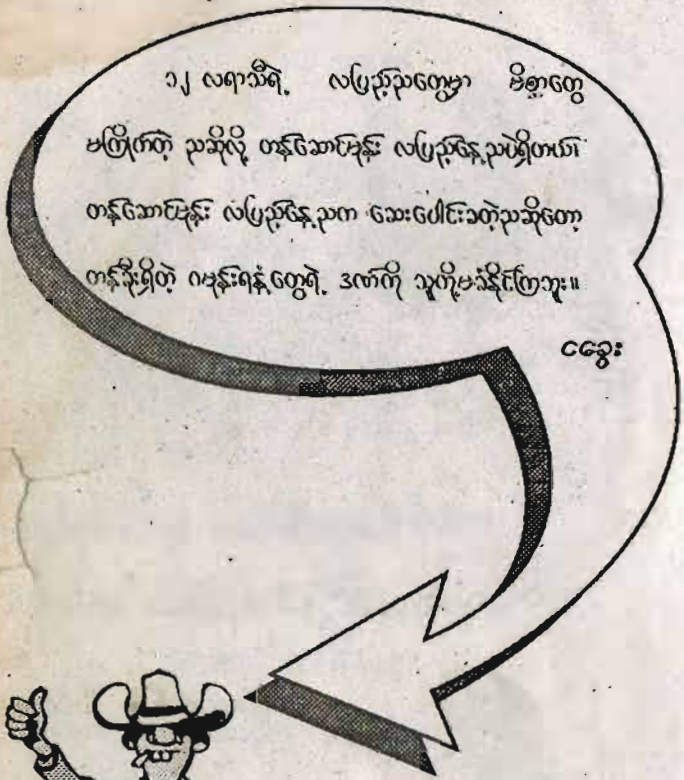 ၁၂ လရာသီရဲ့ လပြည့်ညတွေမှာ ဖိစ္စာတွေ
မကြိုက်တဲ့ ညဆိုလို့ တန်ဆောင်မုန်း လပြည့်နေ့ညပဲရှိတယ်၊
တန်ဆောင်မုန်း လပြည့်နေ့ညက ဆေးပေါင်းခတဲ့ညဆိုတော့
တန်ခိုးရှိတဲ့ ဂမုန်းရနံ့တွေရဲ့ ဒဏ်ကို သူတို့မခံနိုင်ကြဘူး။
ငခွေး